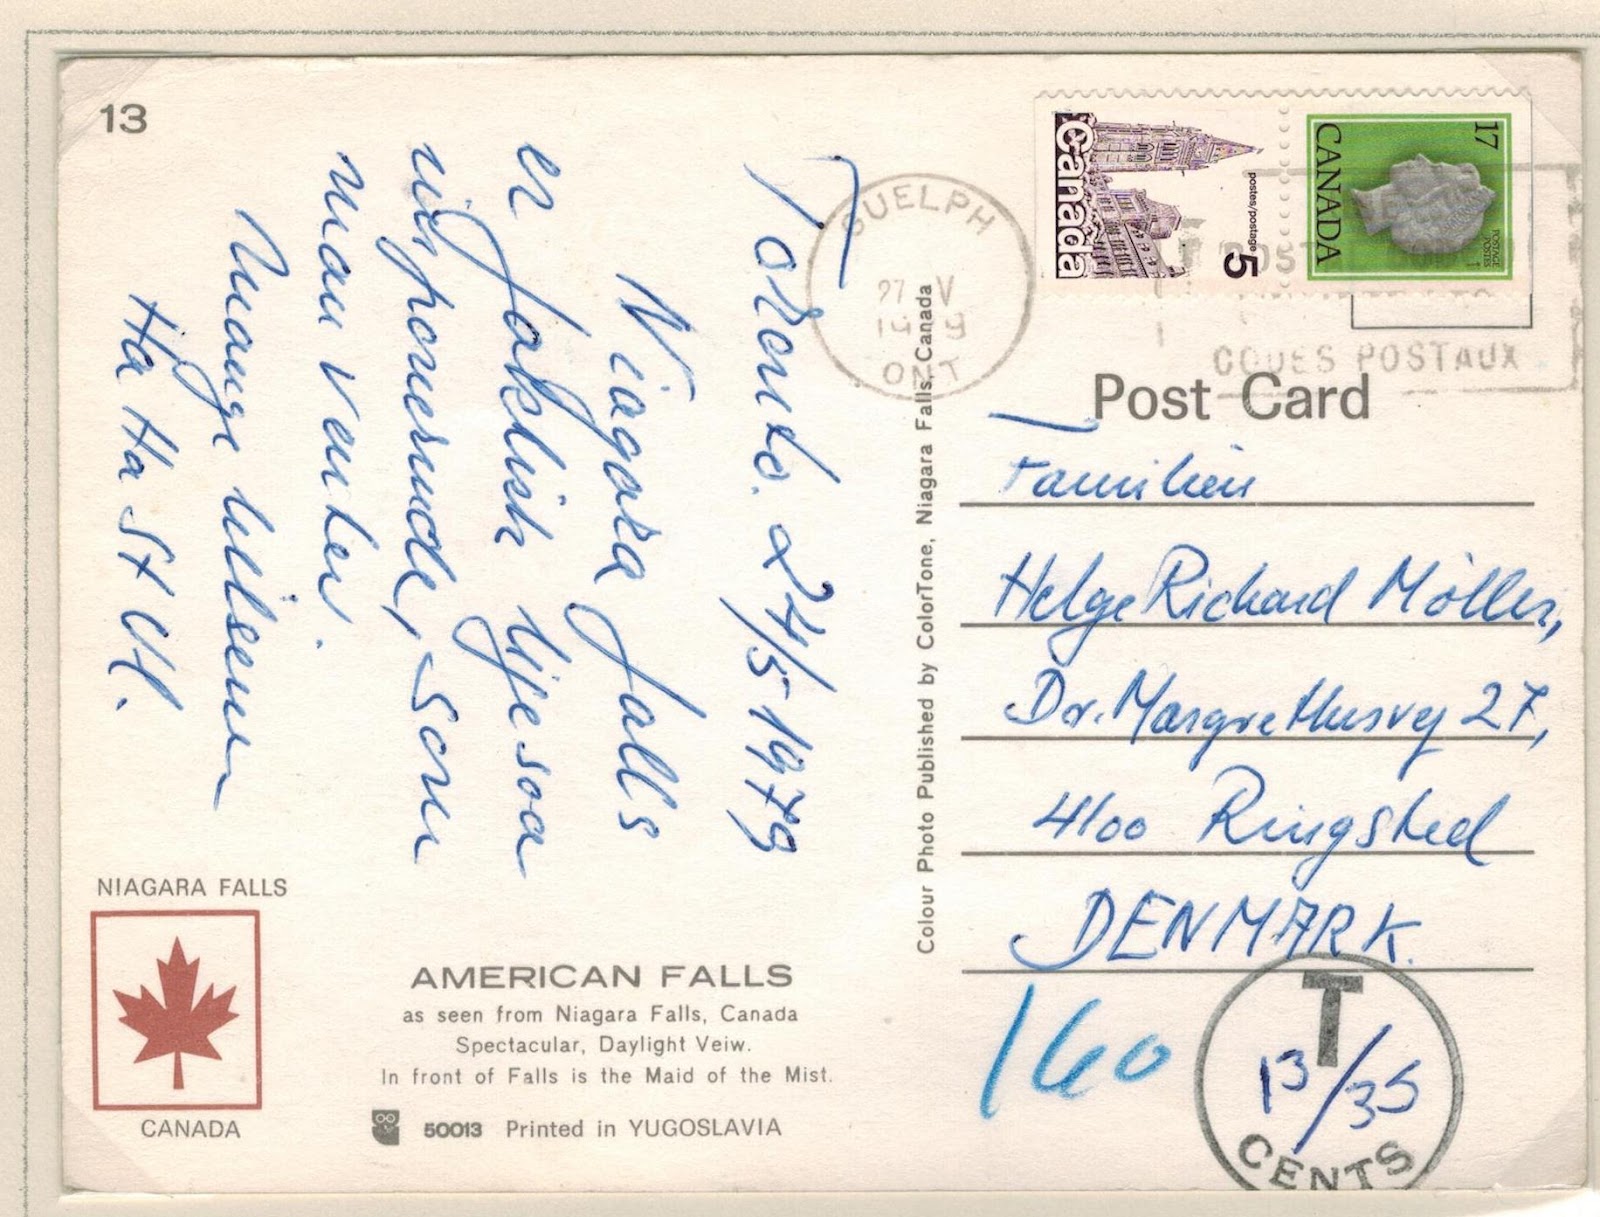 13
Toronto. 24/5-1979
Niagara falls
er faktish ligesaa
imponerende, som
man venter.
Mange hilsener
Ha Ha St U.
NIAGARA FALLS
CANADA
AMERICAN FALLS
as seen from Niagara Falls, Canada
Spectacular, Daylight Veiw.
In front of Falls is the Maid of the Mist.
50013 Printed in YUGOSLAVIA
Colour Photo Published by ColorTone, Niagara Falls, Canada
GUELPH
27 V
ONT
Canada
postes/postage
5
17
CANADA
POSTAGE
POSTES
CODES POSTAUX
Post Card
Familien
Helge Richard Möller,
Dr. Margrethusvej 27,
4100 Ringsted
DENMARK.
160
T
13/35
CENTS